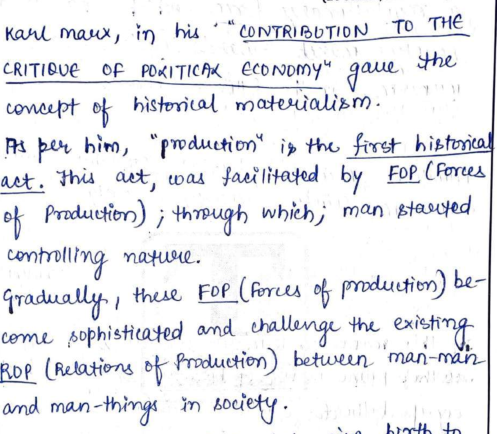 Karl marx, in his "CONTRIBUTION TO THE
CRITIQUE OF POLITICAL ECONOMY" gave the
concept of historical materialism.
As per him, "production" is the first historical
act. This act, was facilitated by FOP (Forces
of Production) ; through which; man started
controlling nature.
Gradually, these FOP (Forces of production) be-
come sophisticated and challenge the existing
ROP (Relations of Production) between man-man
and man-things in society.
birth to